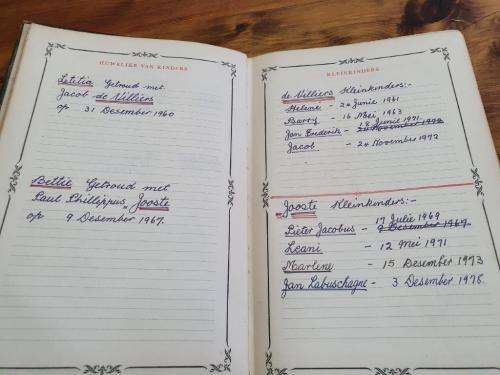 HUWELIKE VAN KINDERS
Letitia Getroud met
Jacob de Villiers
op 31 Desember 1960
Bettie Getroud met
Paul Phillippus Jooste
op 9 Desember 1967.
KLEINKINDERS
de Villiers Kleinkinders:-
Helene - 20 Junie 1961
Barry - 16 Mei 1963
18 Junie 1971
Jan Frederik - 20 November 1972
Jacob - 20 November 1972
Jooste Kleinkinders:-
17 Julie 1969
Pieter Jacobus - 9 Desember 1967.
Leani - 12 Mei 1971
Marlene - 15 Desember 1973
Jan Labuschagne - 3 Desember 1978.